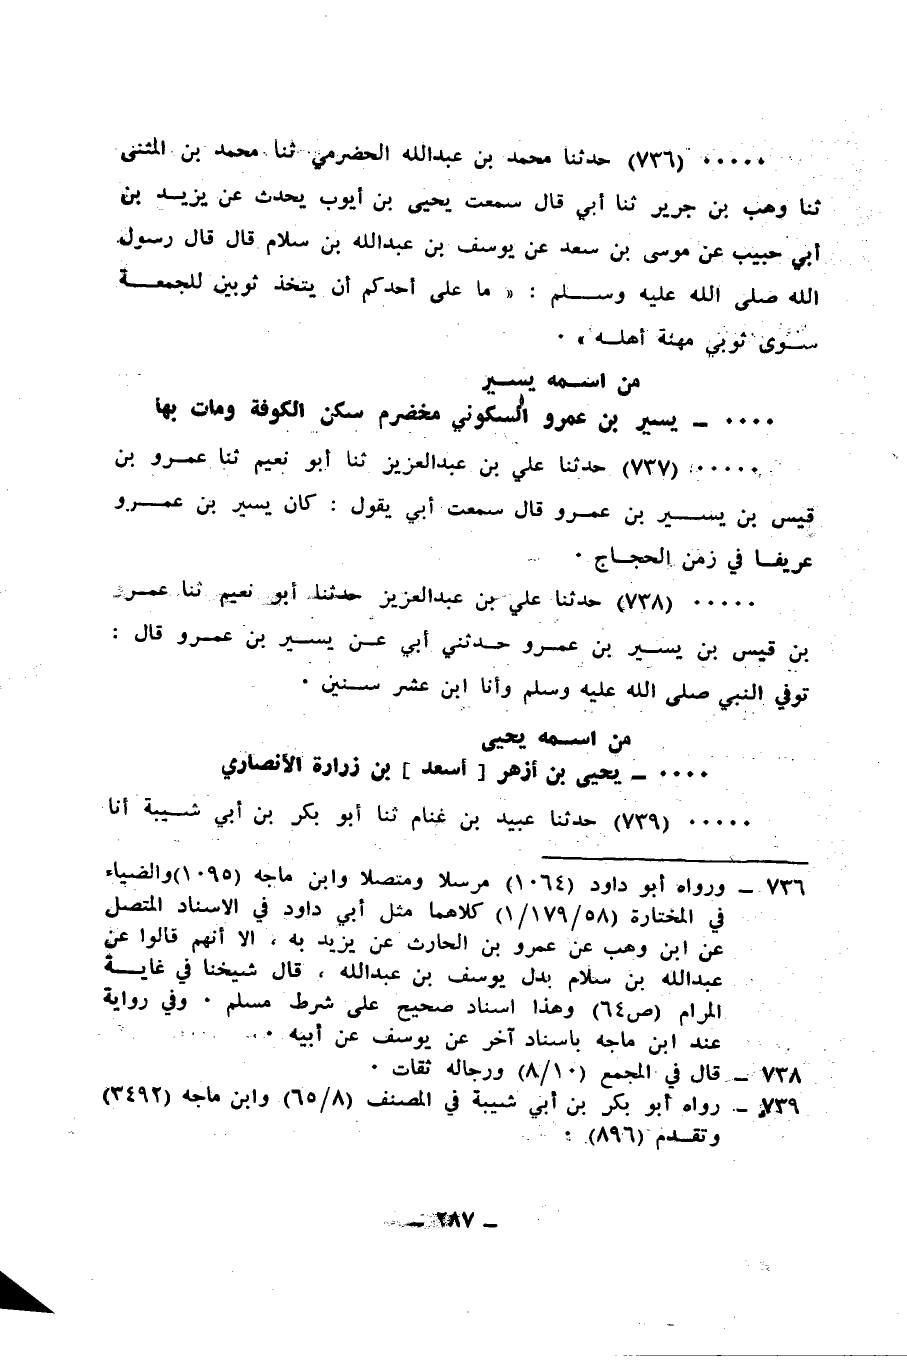 ٠٠٠٠٠ (٧٣٦) حدثنا محمد بن عبدالله الحضرمي ثنا محمد بن المثنى
ثنا وهب بن جرير ثنا أبي قال سمعت يحيى بن أيوب يحدث عن يزيـد بن
أبي حبيب عن موسى بن سعد عن يوسف بن عبدالله بن سلام قال قال رسول
الله صلى الله عليه وسـلم : « ما على أحدكم أن يتخذ ثوبين للجمعـة
سـوى ثوبي مهنة أهلـه » ٠
من اسـمه يسـير
٠٠٠٠ ــ يسير بن عمرو السكوني مخضرم سكن الكوفة ومات بها
٠٠٠٠٠ (٧٣٧) حدثنا علي بن عبدالعزيز ثنا أبو نعيم ثنا عمـرو بن
قيس بن يسـير بن عمـرو قال سمعت أبي يقول : كان يسير بن عمـرو
عريفـا في زمن الحجـاج ٠
٠٠٠٠٠ (٧٣٨) حدثنا علي بن عبدالعزيز حدثنا أبو نعيم ثنا عمـرو
بن قيس بن يسـير بن عمـرو حـدثني أبي عـن يسـير بن عمـرو قال :
توفي النبي صلى الله عليه وسلم وأنا ابن عشر سـنين ٠
من اسـمه يحيى
٠٠٠٠ ــ يحيى بن أزهر [ أسعد ] بن زرارة الأنصاري
٠٠٠٠٠ (٧٣٩) حدثنا عبيد بن غنام ثنا أبو بكر بن أبي شـيبة أنا
٧٣٦ ــ ورواه أبو داود (١٠٦٤) مرسلا ومتصلا وابن ماجه (١٠٩٥) والضياء
في المختارة (١/١٧٩/٥٨) كلاهما مثل أبي داود في الاسناد المتصل
عن ابن وهب عن عمرو بن الحارث عن يزيد به ، الا أنهم قالوا عن
عبدالله بن سلام بدل يوسف بن عبدالله ، قال شيخنا في غايـة
المرام (ص٦٤) وهذا اسناد صحيح على شرط مسلم ٠ وفي رواية
عند ابن ماجه باسناد آخر عن يوسف عن أبيه ٠
٧٣٨ ــ قال في المجمع (٨/١٠) ورجاله ثقات ٠
٧٣٩ ــ رواه أبو بكر بن أبي شيبة في المصنف (٦٥/٨) وابن ماجه (٣٤٩٢)
وتقـدم (٨٩٦) ٠
ــ ٢٨٧ ــ